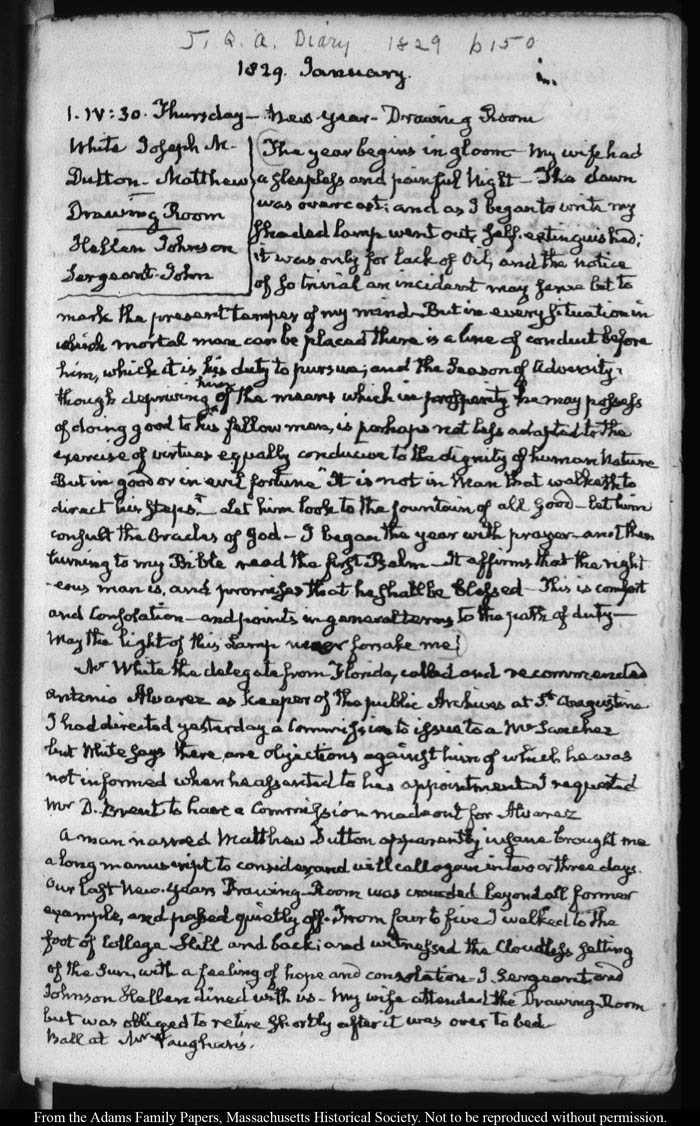 J. Q. A. Diary 1829 p150
1829. January.
1. IV:30. Thursday — New Year — Drawing Room
White Joseph M.
Dutton – Matthew
Drawing Room
Hellen Johnson
Sergeant. John
The year begins in gloom – My wife had
a sleepless and painful Night – The dawn
was overcast; and as I began to write my
shaded lamp went out, self-extinguished;
it was only for lack of Oil, and the notice
of so trivial an incident may serve but to
mark the present temper of my mind – But in every situation in
which mortal man can be placed there is a line of conduct before
him, which it is his duty to pursue; and the season of adversity,
though depriving him of the means which in prosperity he may possess
of doing good to his fellow men, is perhaps not less adapted to the
exercise of virtues equally conducive to the dignity of human Nature
But in good or in evil fortune "It is not in Man that walketh to
direct his steps." – Let him look to the fountain of all good – let him
consult the Oracles of God – I began the year with prayer – and then
turning to my Bible read the first Psalm – It affirms that the right
-eous man is, and promises that he shall be blessed – This is comfort
and consolation – and points in general terms to the path of duty –
May the light of this Lamp never forsake me!
Mr White the delegate from Florida, called and recommended
Antonio Alvarez as keeper of the public Archives at St. Augustine
I had directed yesterday a Commission to issue to a Mr Sanchez
but White says there are objections against him of which he was
not informed when he assented to his appointment. I requested
Mr D. Brent to have a Commission made out for Alvarez
A man named Matthew Dutton apparently insane brought me
a long manuscript to consider and will call again in two or three days.
Our last New-Years Drawing-Room was crowded beyond all former
example, and passed quietly off. From four to five I walked to the
foot of College-Hill and back; and witnessed the Cloudless setting
of the Sun, with a feeling of hope and consolation – J. Sergeant and
Johnson Hellen dined with us – My wife attended the Drawing-Room
but was obliged to retire shortly after it was over to bed
Ball at Mr Vaughan's.
From the Adams Family Papers, Massachusetts Historical Society. Not to be reproduced without permission.